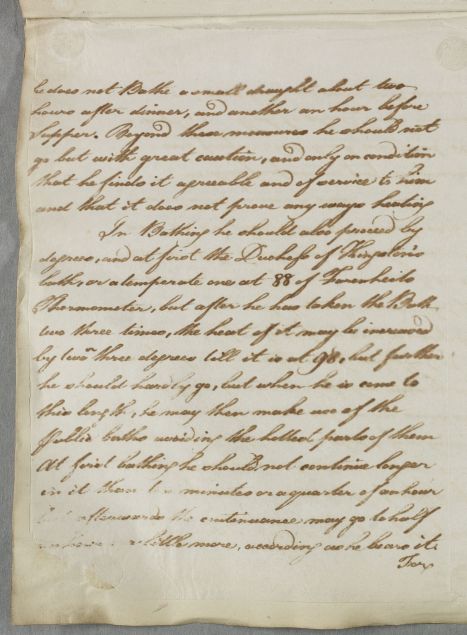 he does not Bathe a small draught about two
hours after dinner, and another an hour before
Supper. Beyond these measures he should not
go but with great caution, and only on condition
that he finds it agreeable and of service to him
and that it does not prove any ways heating
In Bathing he should also proceed by
degrees, and at first the Duchess of Kingston's
bath, or a temperate one at 88 of Farenheits
Thermometer, but after he has taken the Bath
two three times, the heat of it may be increased
by two or three degrees till it is at 98, but further
he should hardly go, but when he is come to
this length, he may then make use of the
Public baths avoiding the hottest parts of them
At first bathing he should not continue longer
in it than ten minutes or a quarter of an hour
but afterwards the continuance may go to half
an hour a little more, according as he bears it.
For